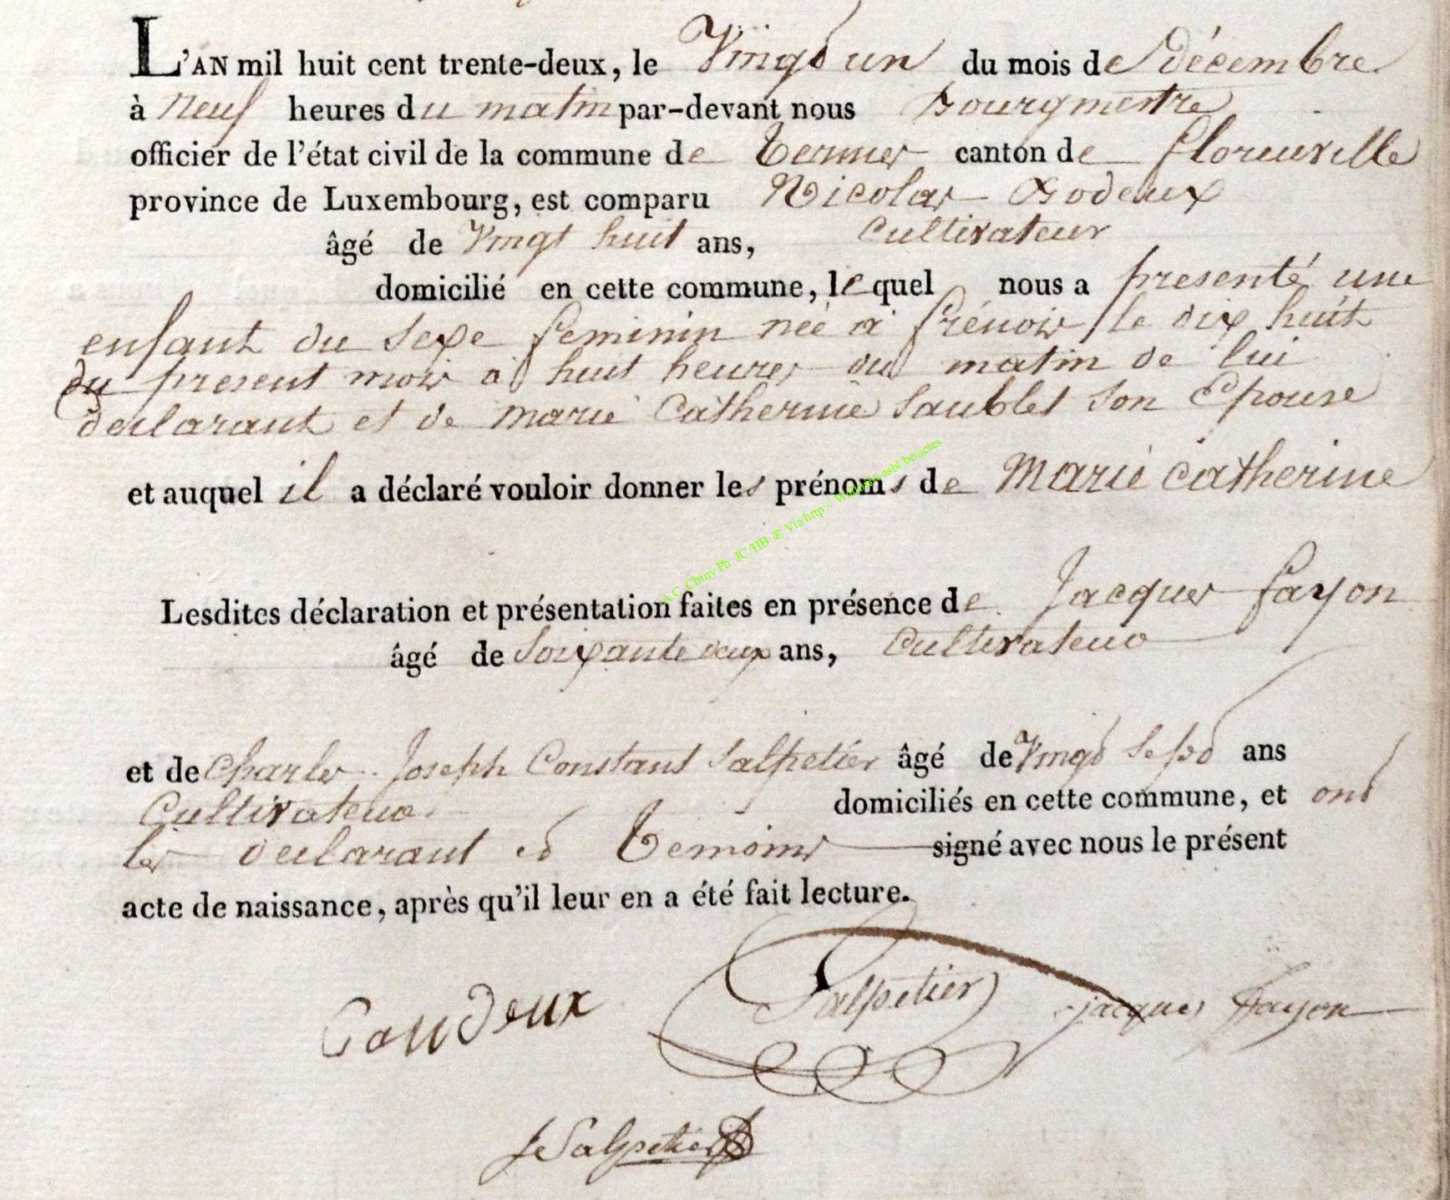 L'AN mil huit cent trente-deux, le Vingt un du mois de décembre
à neuf heures du matin par-devant nous Bourgmestre
officier de l'état civil de la commune de Termes canton de florenville
province de Luxembourg, est comparu Nicolas Godeux
âgé de Vingt huit ans, Cultivateur
domicilié en cette commune, lequel nous a presenté une
enfant du Sexe feminin neé à frénois le dix huit
du present mois à huit heures du matin de lui
declarant et de marie Catherine Saublet son Epouse
et auquel il a déclaré vouloir donner les prénoms de Marie Catherine
Lesdites déclaration et présentation faites en présence de Jacques fayon
âgé de Soixante deux ans, Cultivateur
et de Charles Joseph Constant Salpetier âgé de Vingt Sept ans
Cultivateur domiciliés en cette commune, et ont
les declarant et Temoins signé avec nous le présent
acte de naissance, après qu'il leur en a été fait lecture.
Gaudeux Salpetier jacques fayon
J Salpetier